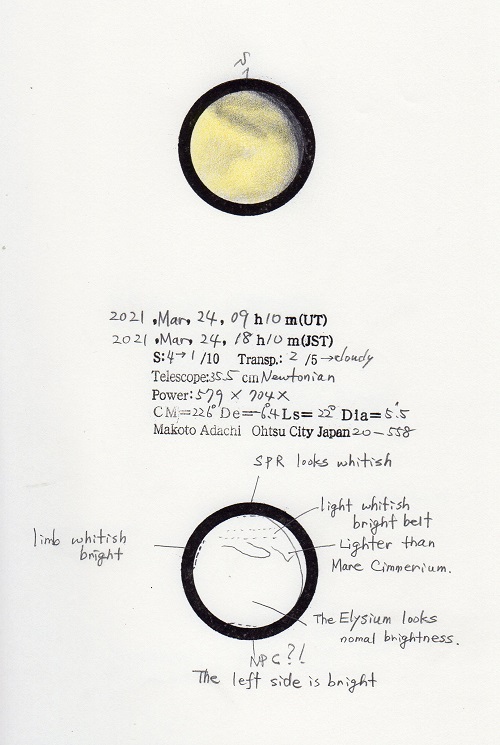 S
2021, Mar, 24, 09 h 10 m (UT)
2021, Mar, 24, 18 h 10 m (JST)
S:4→1 /10 Transp.: 2 /5→cloudy
Telescope:35.5 cm Newtonian
Power: 579 × 704 ×
CM=226° De=-6.4 Ls= 22° Dia= 5".5
Makoto Adachi Ohtsu City Japan 20-558
SPR looks whitish
light whitish
bright belt
limb whitish
bright
Lighter than
Mare Cimmerium.
The Elysium looks
nomal brightness.
NPC?!
The left side is bright